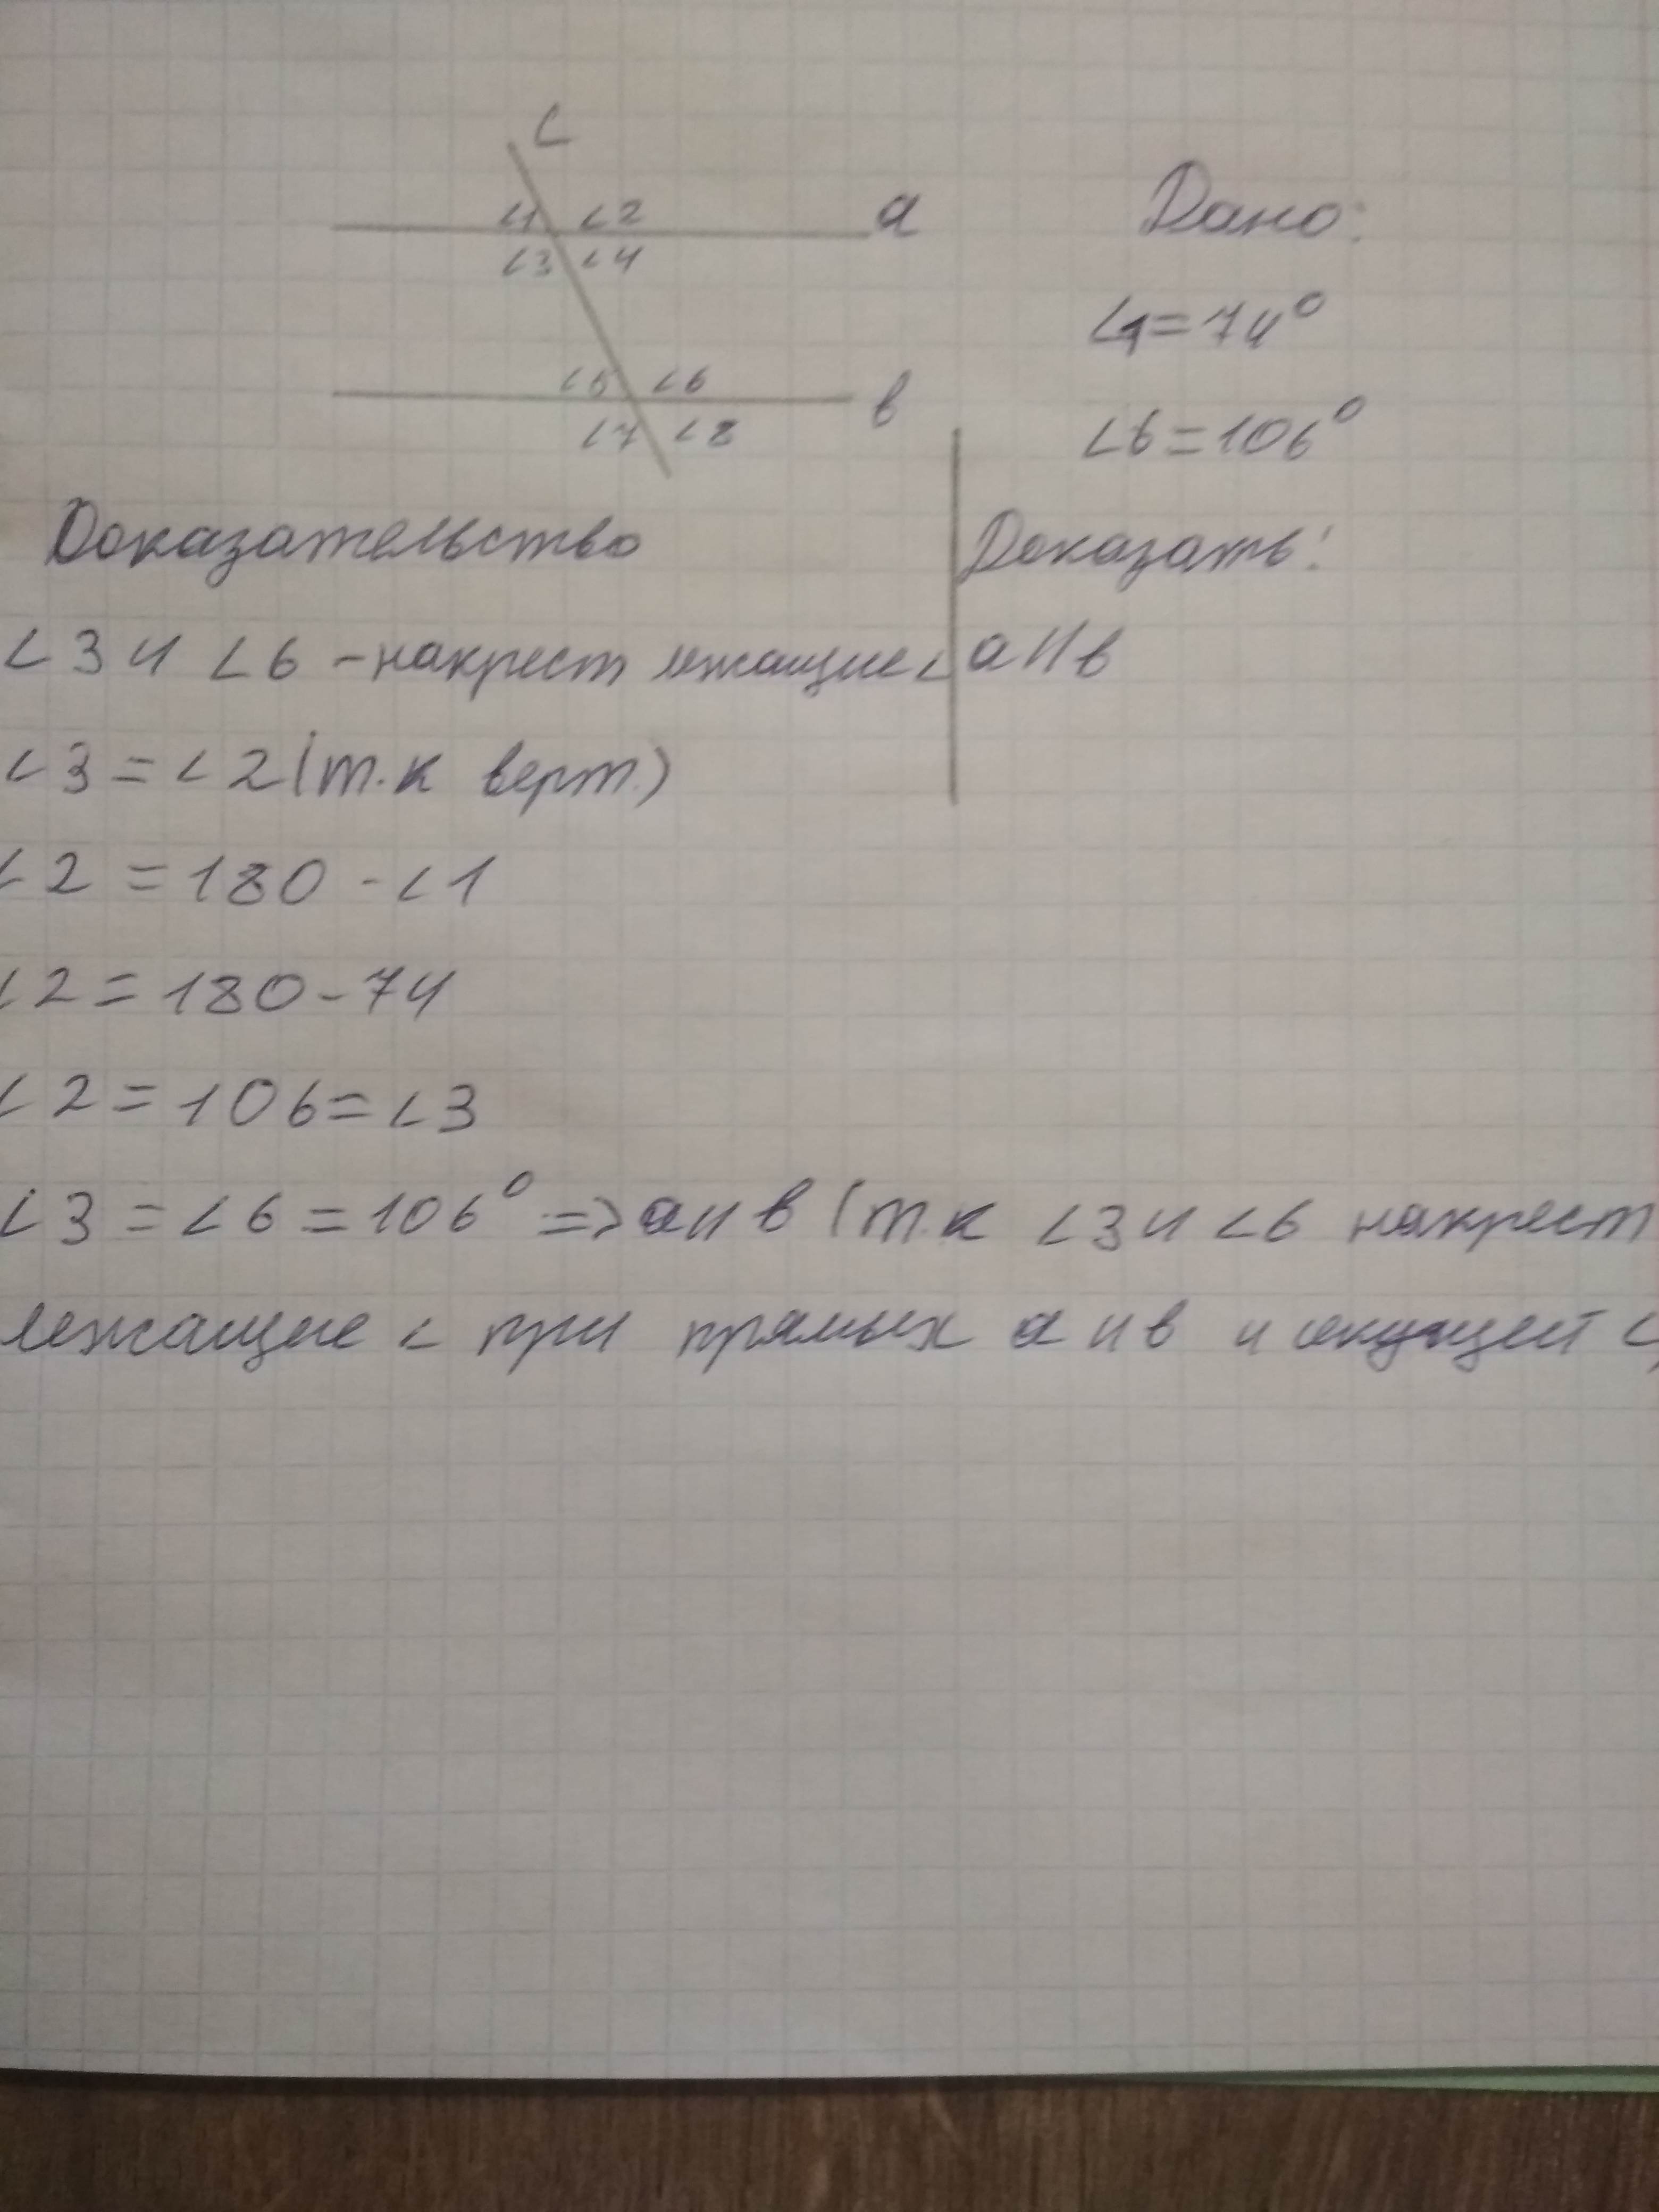 c
∠1 ∠2 a
∠3 ∠4
∠5 ∠6 в
∠7 ∠8
Дано:
∠1=74°
∠6=106°
Доказать:
a||в
Доказательство
∠3 и ∠6 - накрест лежащие ∠
∠3=∠2(т.к верт.)
∠2=180-∠1
∠2=180-74
∠2=106=∠3
∠3=∠6=106° => a||в (т.к ∠3 и ∠6 накрест
лежащие ∠ при прямых a и в и секущей с)